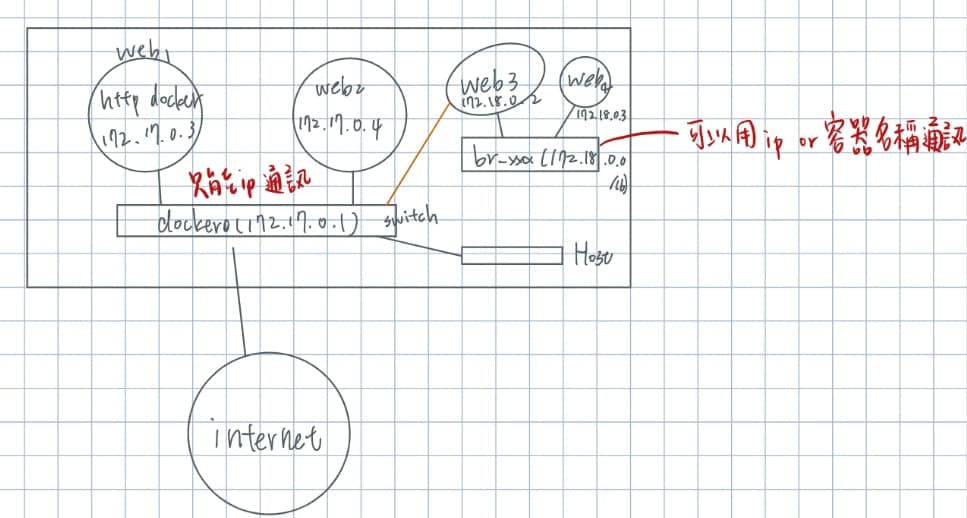 web1
http docker
172.17.0.3
web2
172.17.0.4
web3
172.18.0.2
web4
172.18.03
br-xxx (172.18.0.0
/16)
可以用 ip or 容器名稱通訊
只能 ip 通訊
docker0 (172.17.0.1)
switch
Host
internet